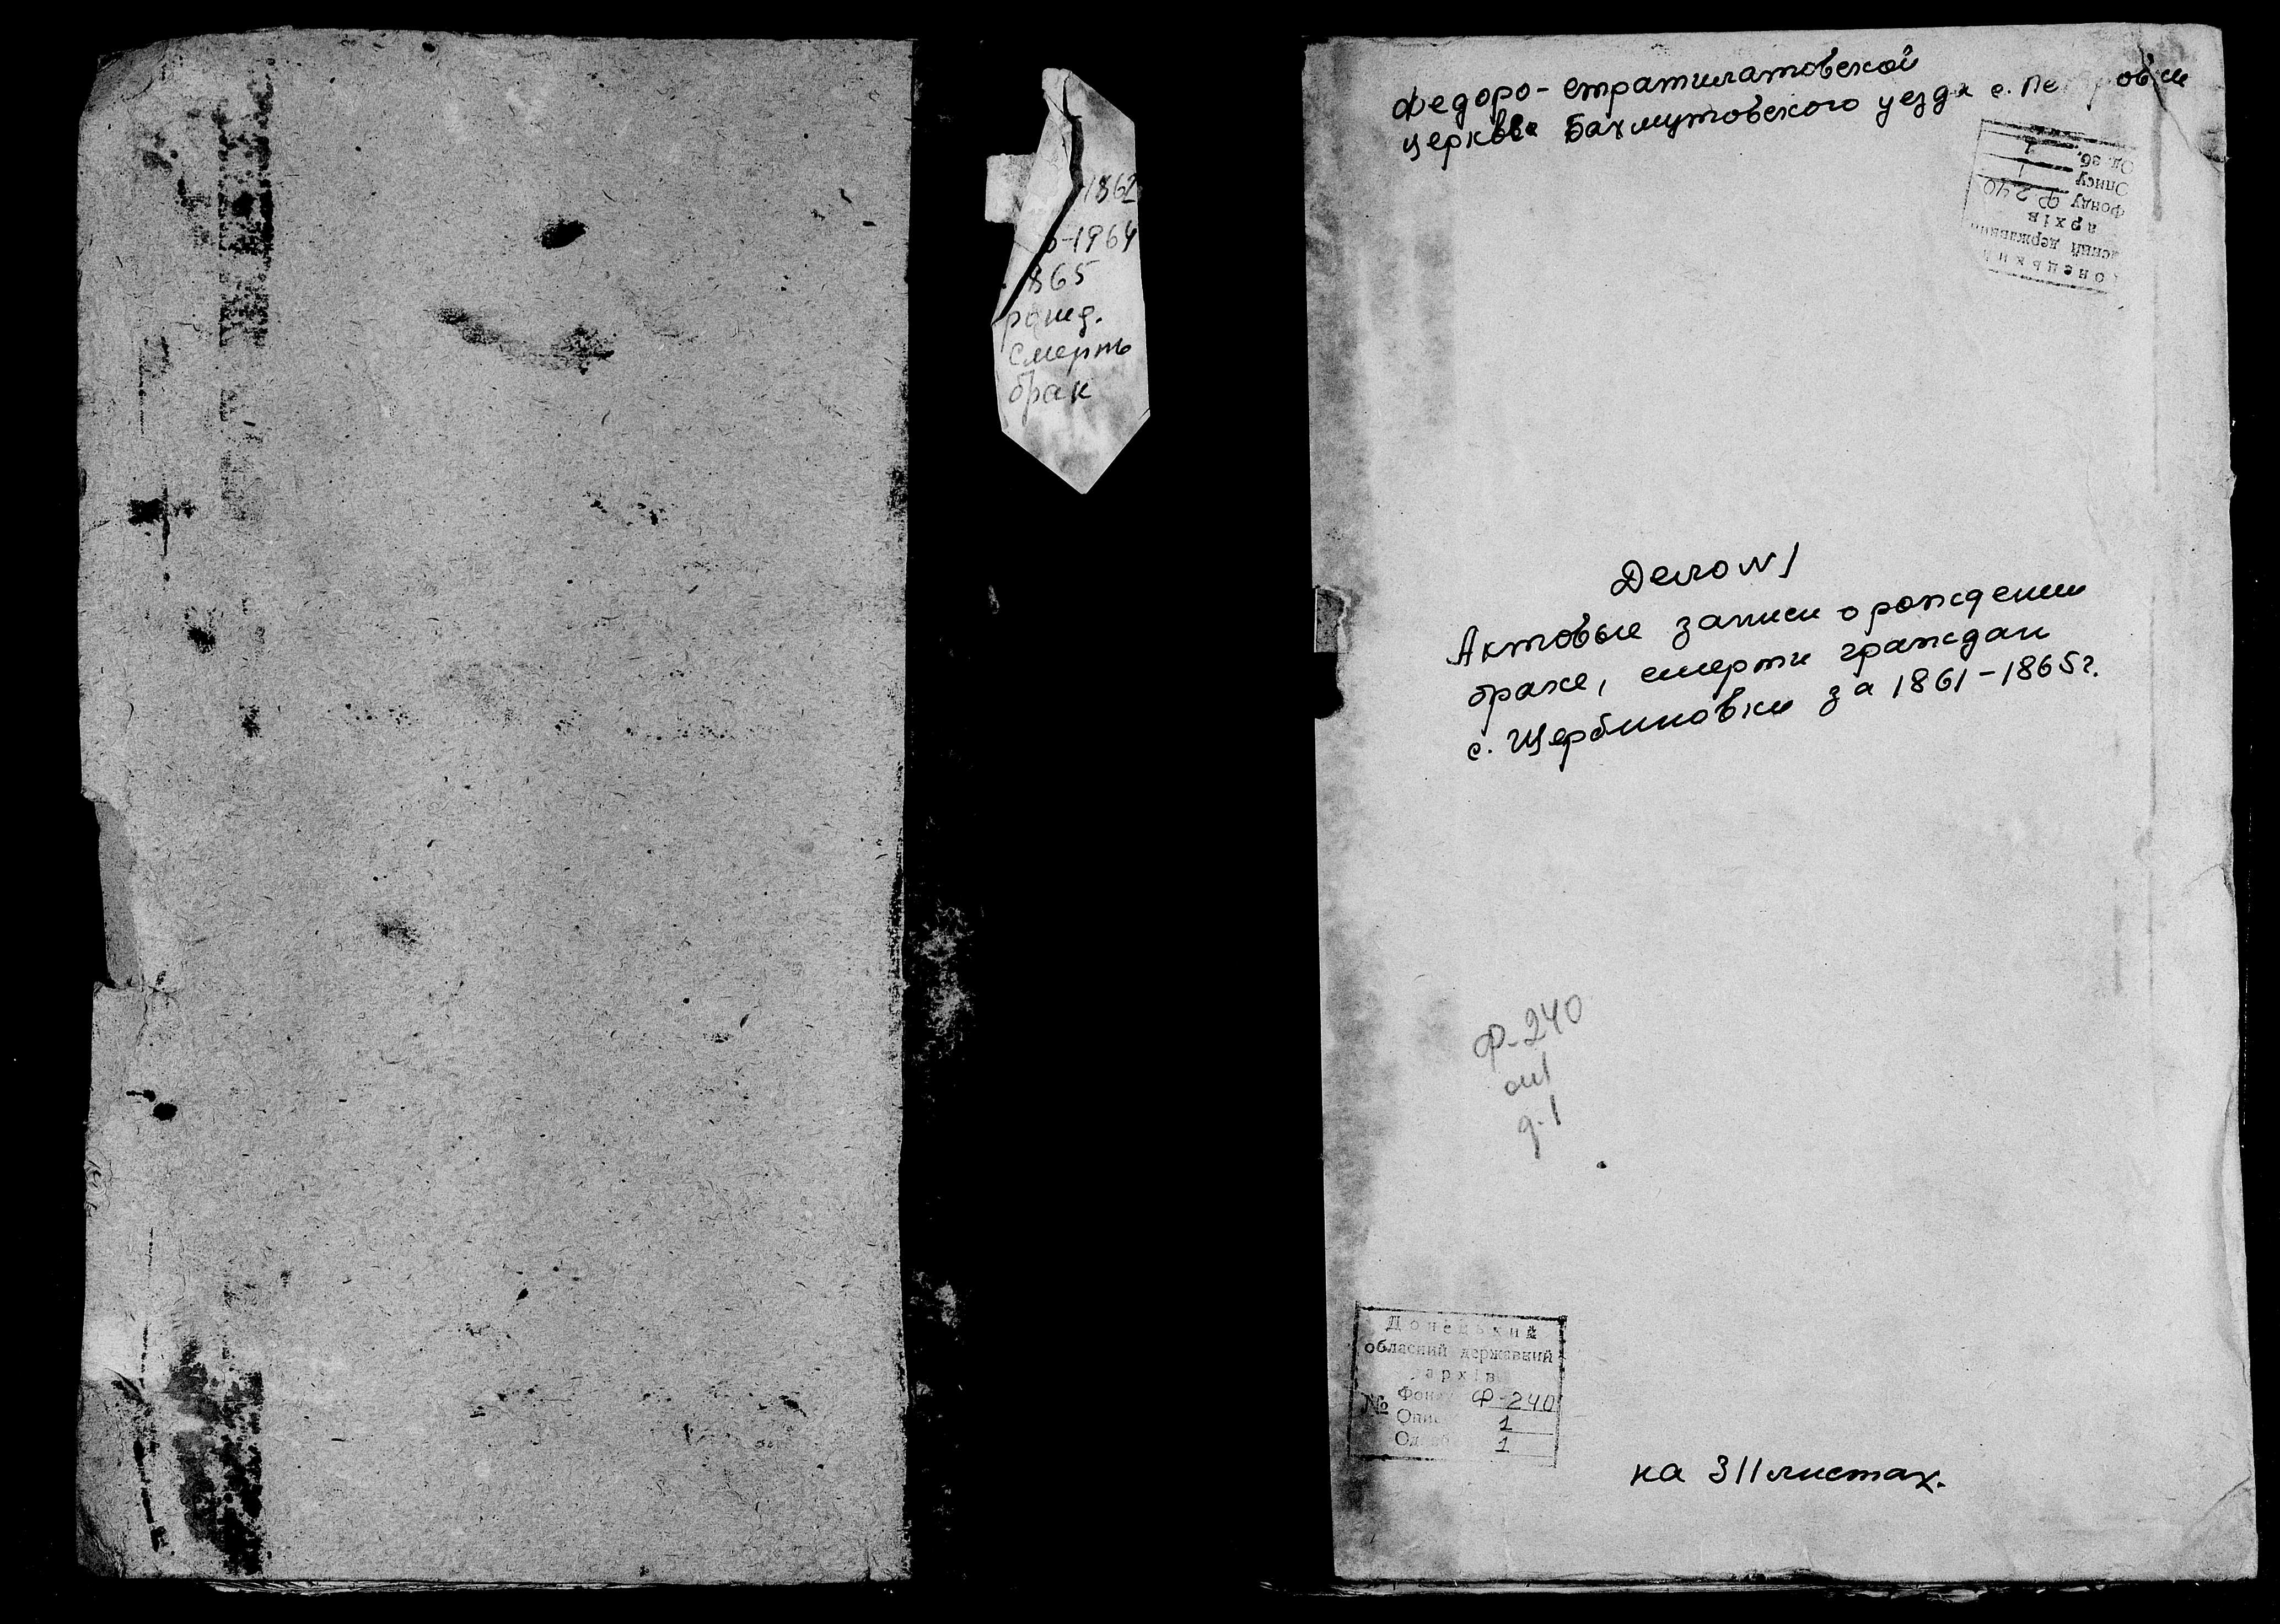 1862
-1964
865
рожд.
смерть
брак
Федоро-стратилатовской
церкви Бахмутовского уезда с.
Донецький
обласний державний
архів
Фонду Ф 240
Опису 1
Од. зб. 1
Дело N1
Актовые записи о рождении
браке, смерти граждан
с. Щербиновки за 1861-1865г.
Ф-240
оп1
д.1
Донецький
обласний державний
архів
№ Фонду Ф-240
Опис 1
Од. зб 1
на 311 листах.